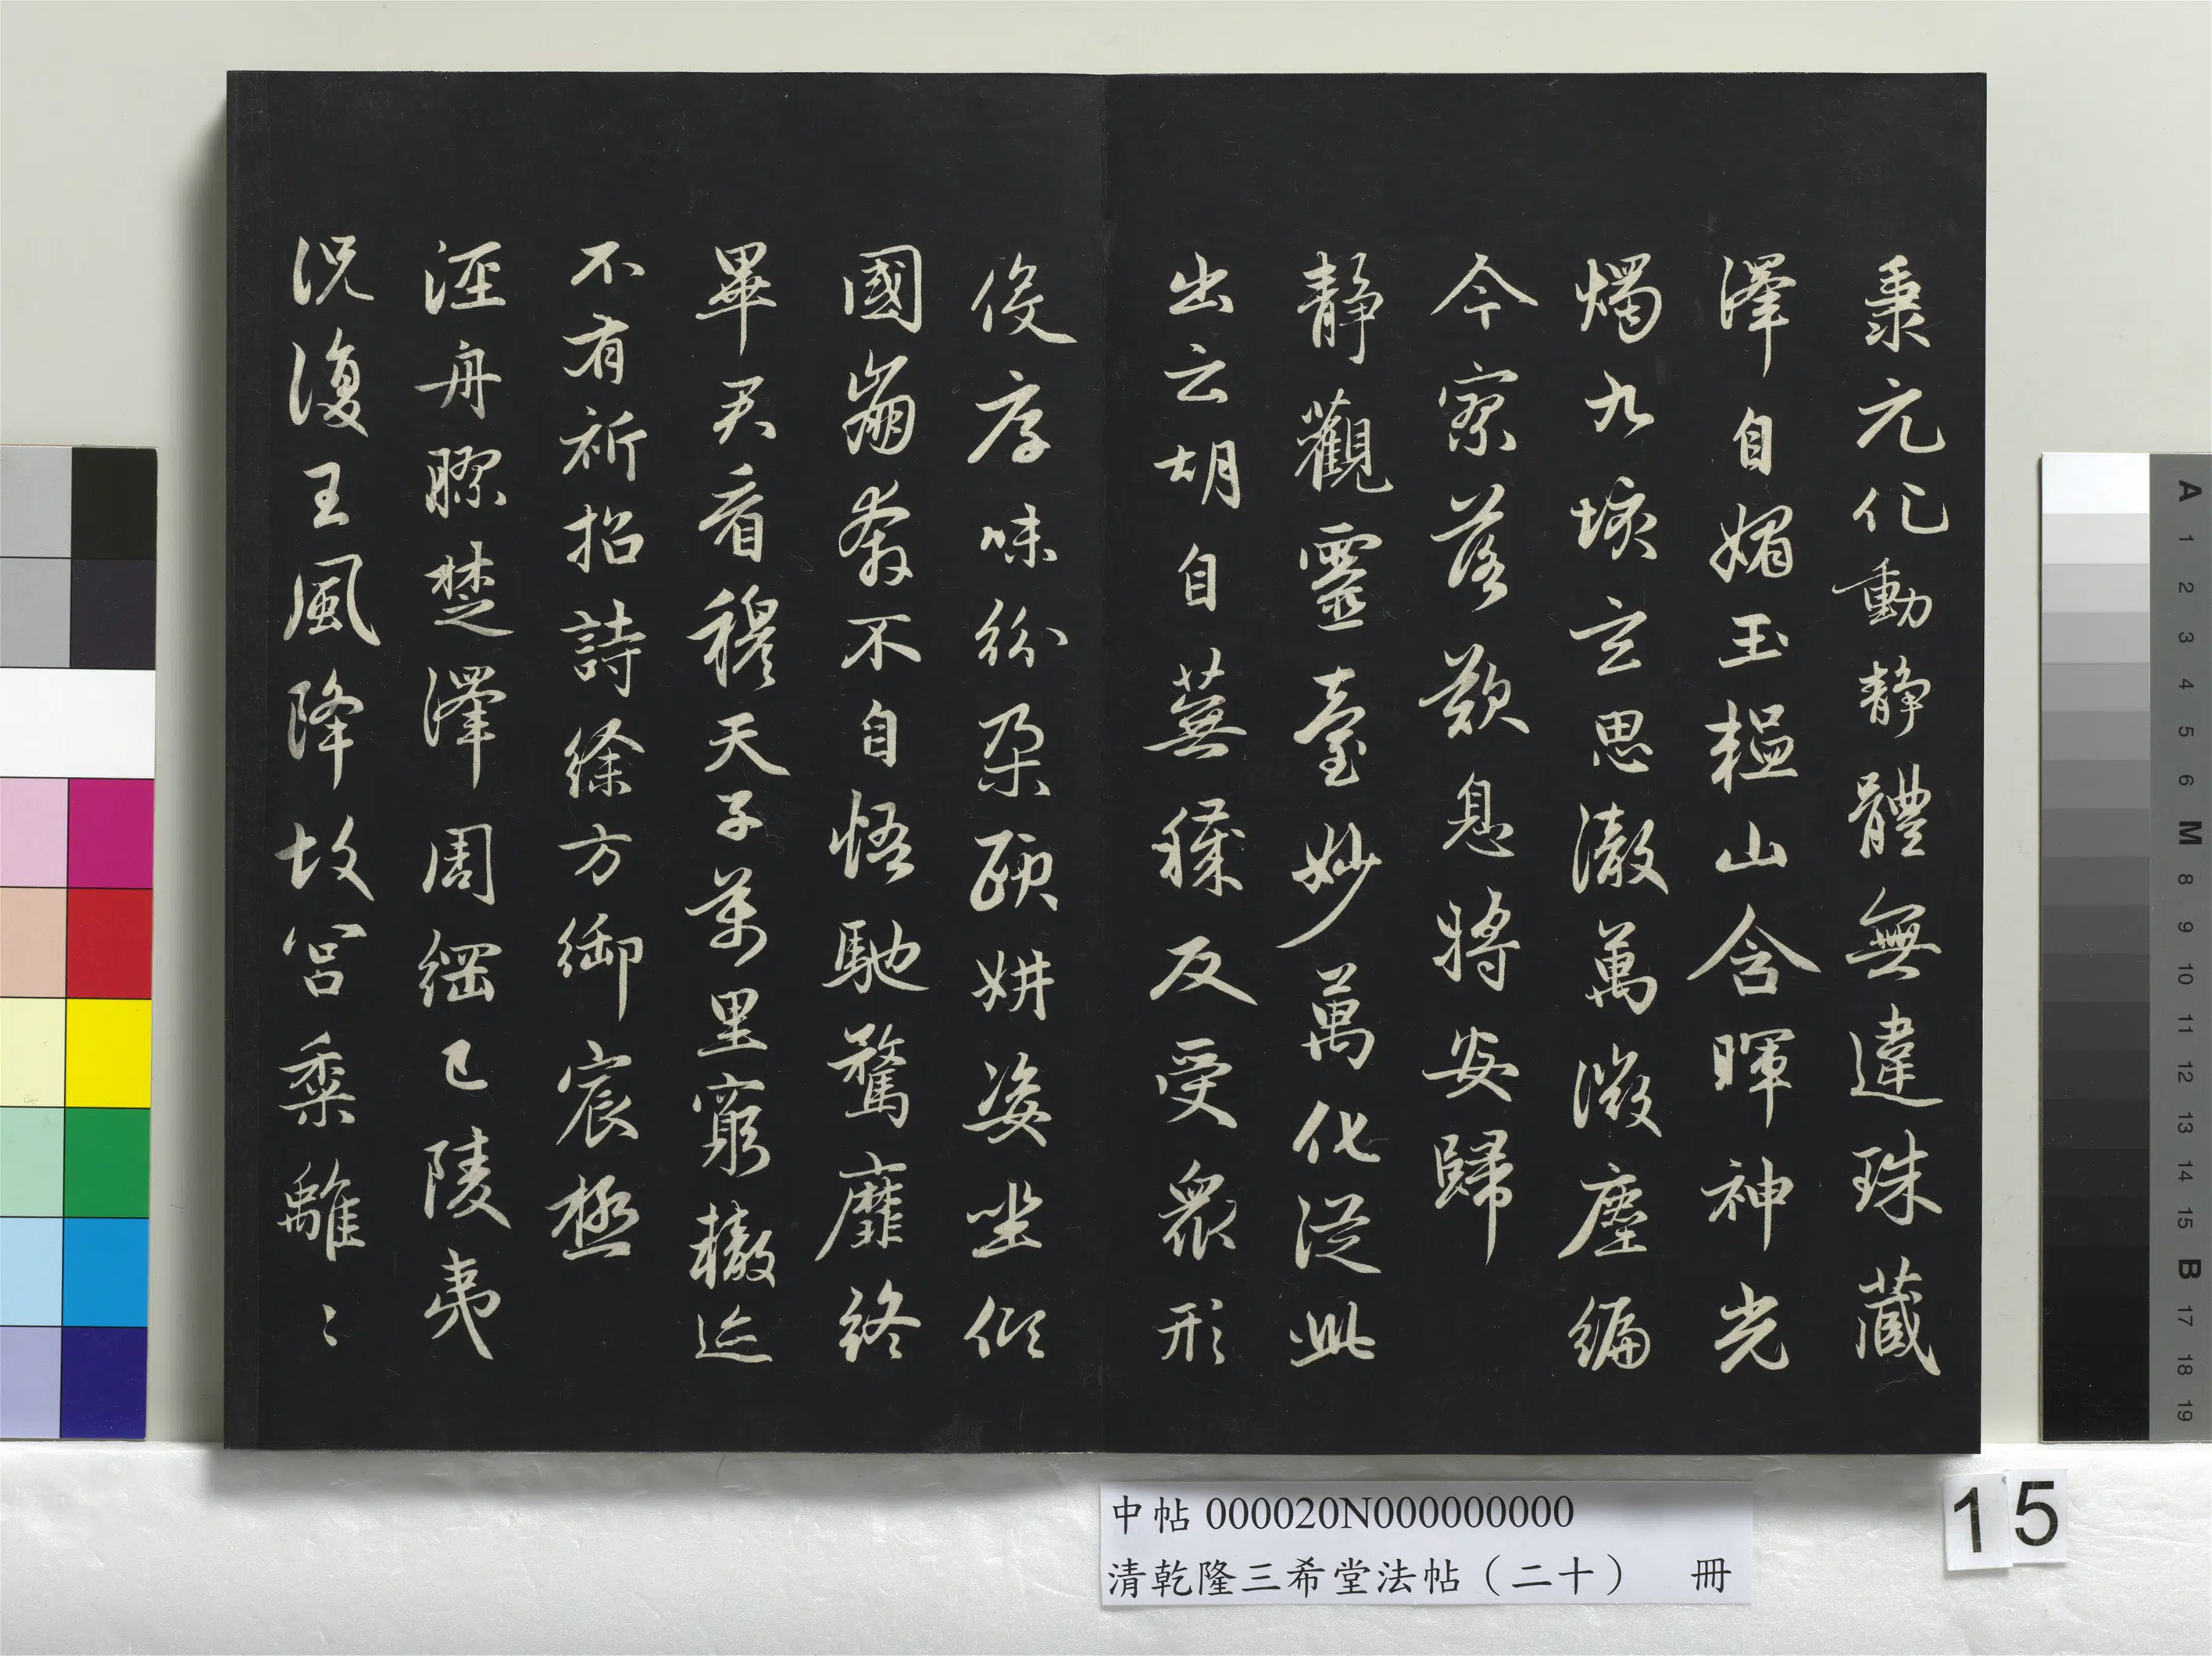 秉元化動靜體無違珠藏
澤自媚玉韞山含暉神光
燭九垓玄思澈萬微塵編
今寥落歎息將安歸
靜觀靈臺妙萬化從此
出云胡自蕪穢反受衆形
役厚味紛朵頤妍姿坐傾
國崩奔不自悟馳騖靡終
畢君看穆天子萬里窮轍迹
不有祈招詩徐方御宸極
涇舟膠楚澤周綱已陵夷
況復王風降故宮黍離〻
中帖 000020N000000000
清乾隆三希堂法帖（二十） 冊
15
A 1 2 3 4 5 6 M 8 9 10 11 12 13 14 15 B 17 18 19